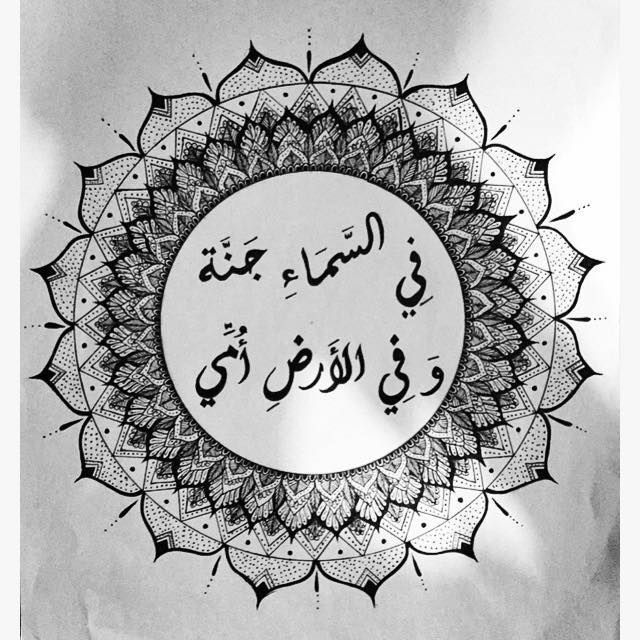 فِي السَّمَاءِ جَنَّة
وَ فِي الأَرضِ أُمِّي